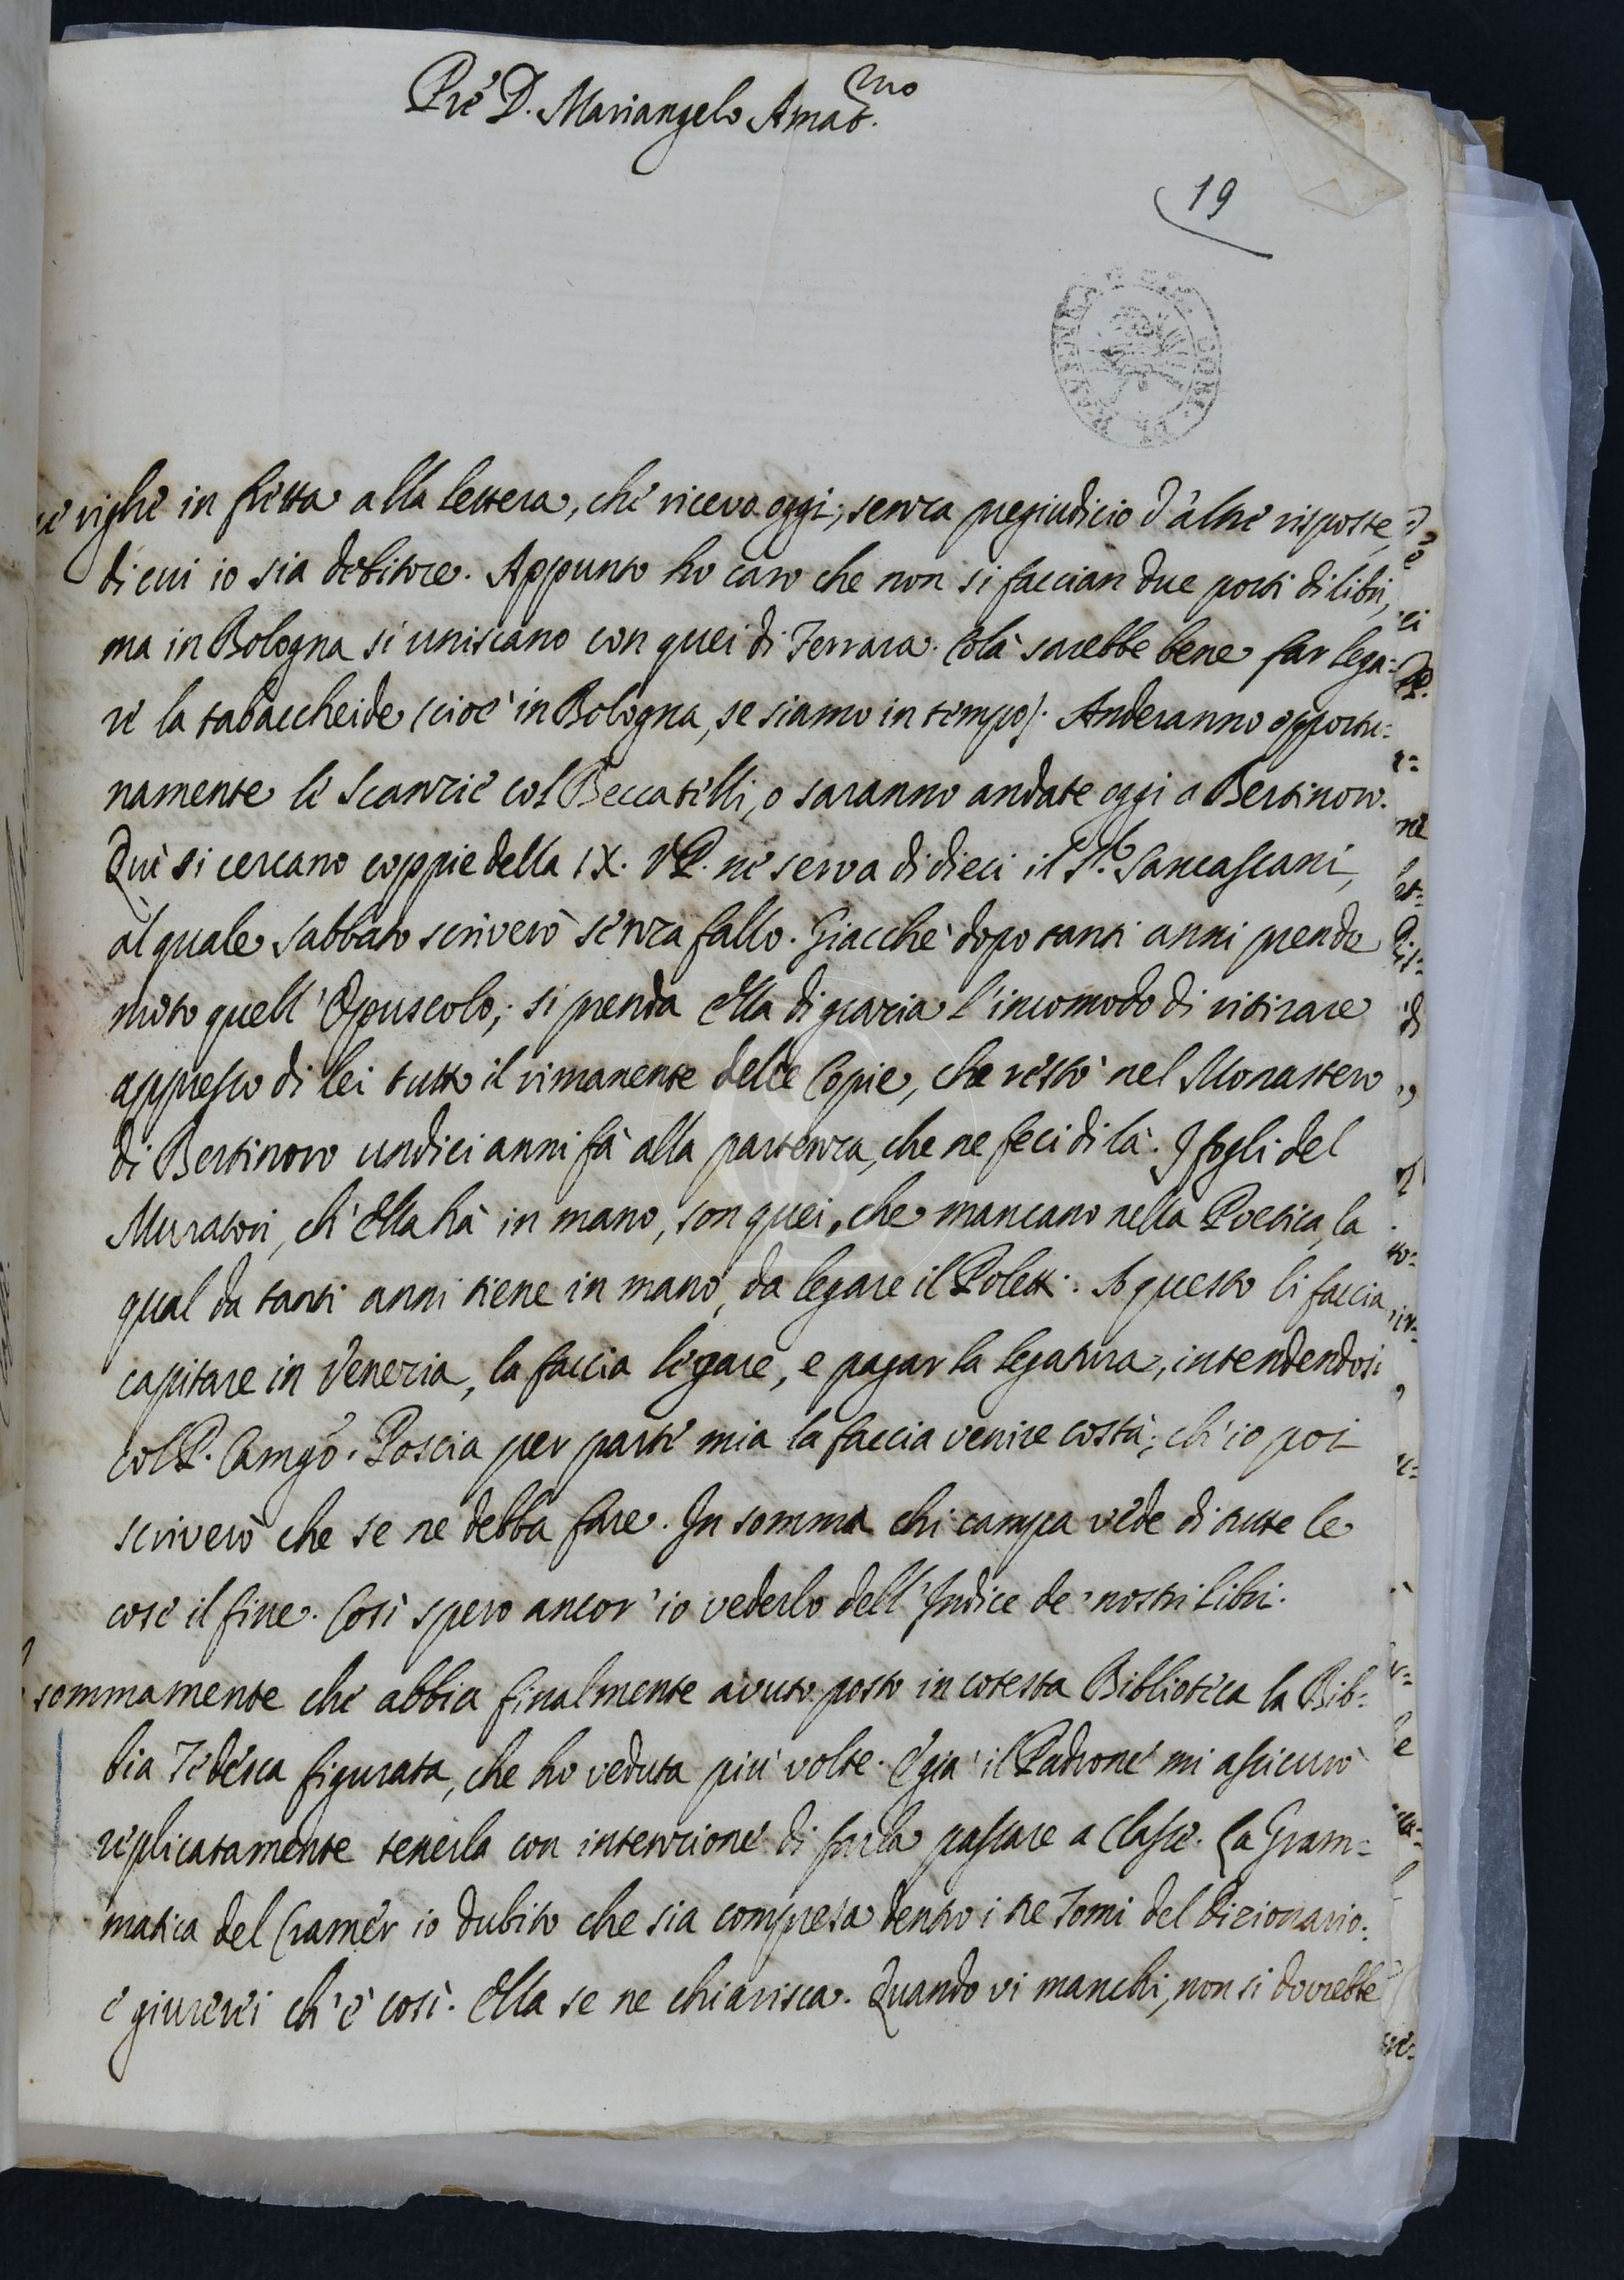 Prẽ D. Mariangelo Amat.mo
19
righe in fretta alla lettera, che ricevo oggi, senza pregiudicio d'altre risposte,
di cui io sia debitore. Appunto ho caro che non si faccian due porti di libri,
ma in Bologna si uniscano con quei di Ferrara. Colà sarebbe bene far lega=
re la tabaccheide (cioè in Bologna, se siamo in tempo). Anderanno opportu=
namente le Scanzie col Beccatelli, o saranno andate oggi a Bertinoro.
Quì si cercano coppie della IX. V.P. ne serva di dieci il Sancassani,
al quale sabbato scriverò senza fallo. Giacchè dopo tanti anni prende
moto quell'Opuscolo; si prenda Ella di grazia l'incomodo di ritirare
appresso di lei tutto il rimanente delle Copie, che restò nel Monastero
di Bertinoro undici anni fà alla partenza, che ne feci di là. I fogli del
Muratori, ch'Ella hà in mano, son quei, che mancano nella Poetica, la
qual da tanti anni tiene in mano, da legare il Poletti. A questo li faccia
capitare in Venezia, la faccia legare, e pagar la legatura, intendendosi
col P. Poscia per parte mia la faccia venire costà; ch'io poi
scriverò che se ne debba fare. In somma chi campa vede di tutte le
cose il fine. Così spero ancor'io vederlo dell'Indice de' nostri Libri.
sommamente che abbia finalmente avuto posto in cotesta Biblioteca la Bib=
bia Tedesca figurata, che ho veduta più volte. E già il Padrone mi assicurò
replicatamente tenerla con intenzione di farla passare a Classe. La Gram=
matica del Cramer io dubito che sia compresa dentro i tre Tomi del Dizionario:
e giurerei ch'è così. Ella se ne chiarisca. Quando vi manchi, non si dovrebbe